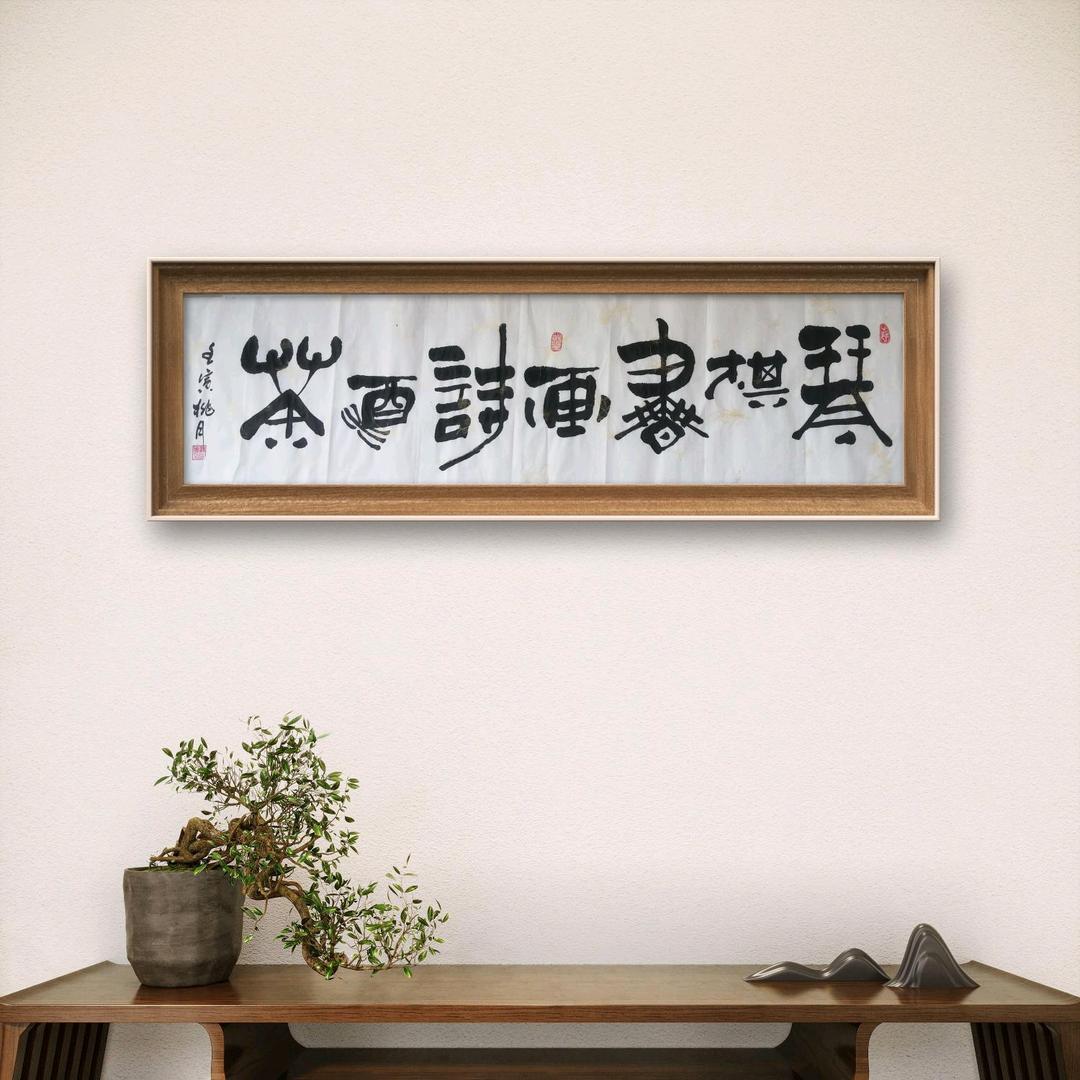 琴棋書画詩酒茶
壬寅桃月